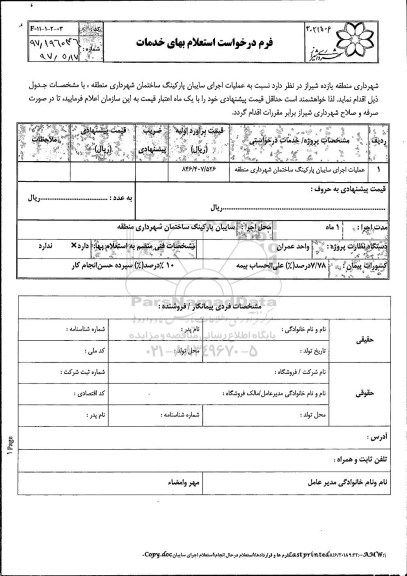 فرم درخواست استعلام بهای خدمات
کد : F-۱۱-۱-۲-۰۳
شماره : ۹۷/۱۹۶۰۳۶
شهرداری منطقه یازده شیراز در نظر دارد نسبت به عملیات اجرای سایبان پارکینگ ساختمان شهرداری منطقه ، با مشخصات جدول
ذیل اقدام نماید. لذا خواهشمند است حداقل قیمت پیشنهادی خود را با یک ماه اعتبار قیمت به این سازمان اعلام فرمایید، تا در صورت
صرفه و صلاح شهرداری شیراز برابر مقررات اقدام گردد.
ردیف مشخصات پروژه/ خدمات درخواستی قیمت برآورد اولیه (ریال) ضریب پیشنهادی قیمت پیشنهادی (ریال) ملاحظات
۱ عملیات اجرای سایبان پارکینگ ساختمان شهرداری منطقه ۸۴۶/۴۰۷/۵۲۶
قیمت پیشنهادی به حروف :
ریال به عدد : ریال
مدت اجرا : ۱ ماه محل اجرا : سایبان پارکینگ ساختمان شهرداری منطقه
دستگاه نظارت پروژه : واحد عمران مشخصات فنی منضم به استعلام بها: دارد× ندارد
کسورات پیمان : ۷/۷۸درصد(%) علی‌الحساب بیمه ۱۰ درصد(%) سپرده حسن‌انجام کار
مشخصات فردی پیمانکار / فروشنده :
حقیقی نام و نام خانوادگی : نام پدر : شماره شناسنامه :
تاریخ تولد : محل تولد : کد ملی :
حقوقی نام شرکت / فروشگاه : شماره ثبت شرکت :
نام و نام خانوادگی مدیرعامل/مالک فروشگاه : کد اقتصادی :
محل تولد : شماره شناسنامه : نام پدر :
آدرس :
تلفن ثابت و همراه :
نام ونام خانوادگی مدیر عامل مهر وامضاء
ParsNamadData
پایگاه اطلاع رسانی مناقصه و مزایده
۰۲۱-۸۸۳۴۹۶۷۰-۵
۱ Page